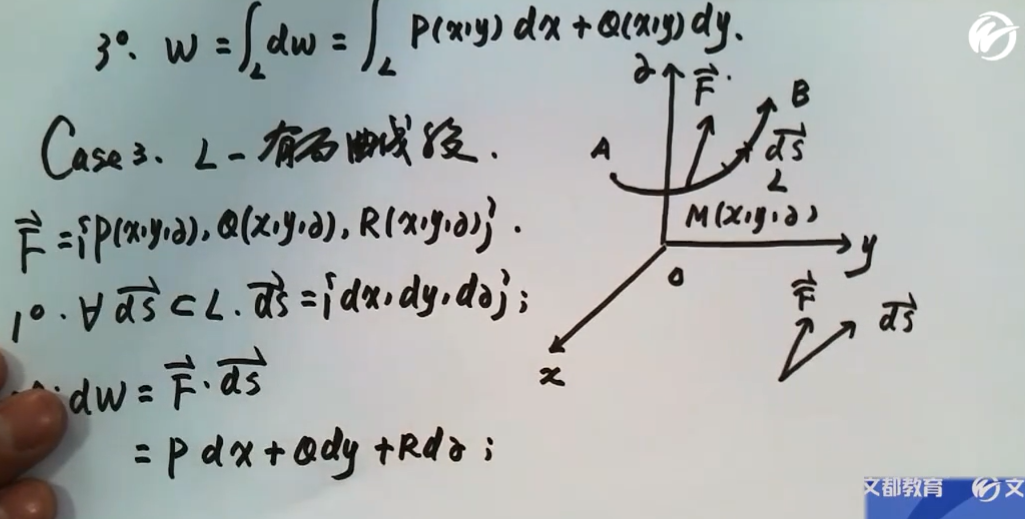 3°. W = ∫_L dw = ∫_L P(x,y) dx + Q(x,y) dy.
Case 3. L - 有向曲线段.
F⃗ = {P(x,y,z), Q(x,y,z), R(x,y,z)}.
1°. ∀ ds⃗ ⊂ L. ds⃗ = {dx, dy, dz};
dw = F⃗ · ds⃗
= P dx + Q dy + R dz;
z
F⃗
B
A
ds⃗
L
M(x,y,z)
y
O
x
F⃗
ds⃗
文都教育
文